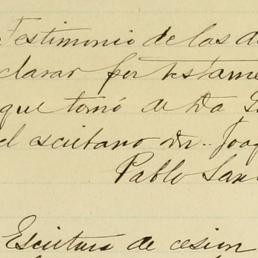 Testimonio de las de
clarar por testame
que tomó de Da
el escribano Dn. Joaq
Pablo San
Escritura de cesion